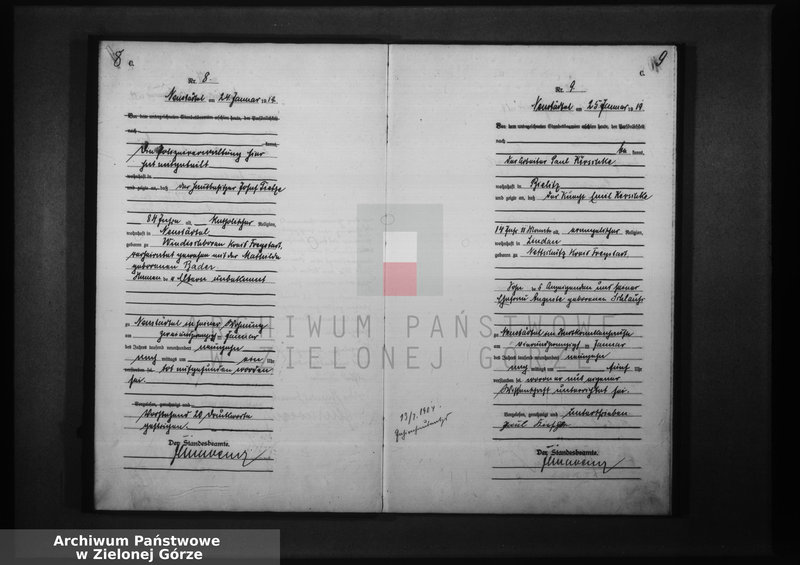 8
C.
Nr. 8
Neustädtel am 24 Januar 1919
Vor dem unterzeichneten Standesbeamten erschien heute, der Persönlichkeit
nach
kannt,
Die Polizeiverwaltung hier
hat mitgeteilt
wohnhaft in
und zeigte an, daß der Hausbesitzer Josef Tietze
84 Jahre alt, Katholischer Religion,
wohnhaft in Neustädtel
geboren zu Kreis Freystadt,
verheiratet gewesen mit der Mathilde
geborenen Bader
Namen der Eltern unbekannt
zu Neustädtel in seiner Wohnung
am Januar
des Jahres tausend neunhundert neunzehn
nach mittags um Uhr
verstorben tot aufgefunden worden
sei.
Vorgelesen, genehmigt und
Vorstehend 20 Druckworte
gestrichen.
Der Standesbeamte.
9
C.
Nr. 9
Neustädtel am 25 Januar 1919
Vor dem unterzeichneten Standesbeamten erschien heute, der Persönlichkeit
nach
be kannt,
der Arbeiter Paul
wohnhaft in Bielitz
und zeigte an, daß der Knecht Emil
14 Jahr 11 Monate alt, evangelischer Religion,
wohnhaft in Lindau
geboren zu Kreis Freystadt
Sohn des Anzeigenden und seiner
Ehefrau Auguste geborenen
zu Neustädtel im
am vierundzwanzigsten Januar
des Jahres tausend neunhundert neunzehn
nach mittags um fünf Uhr
verstorben sei, wovon er aus eigener
Wissenschaft unterrichtet sei.
Vorgelesen, genehmigt und unterschrieben
Paul
Der Standesbeamte.
ARCHIWUM PAŃSTWOWE
W ZIELONEJ GÓRZE
Archiwum Państwowe
w Zielonej Górze